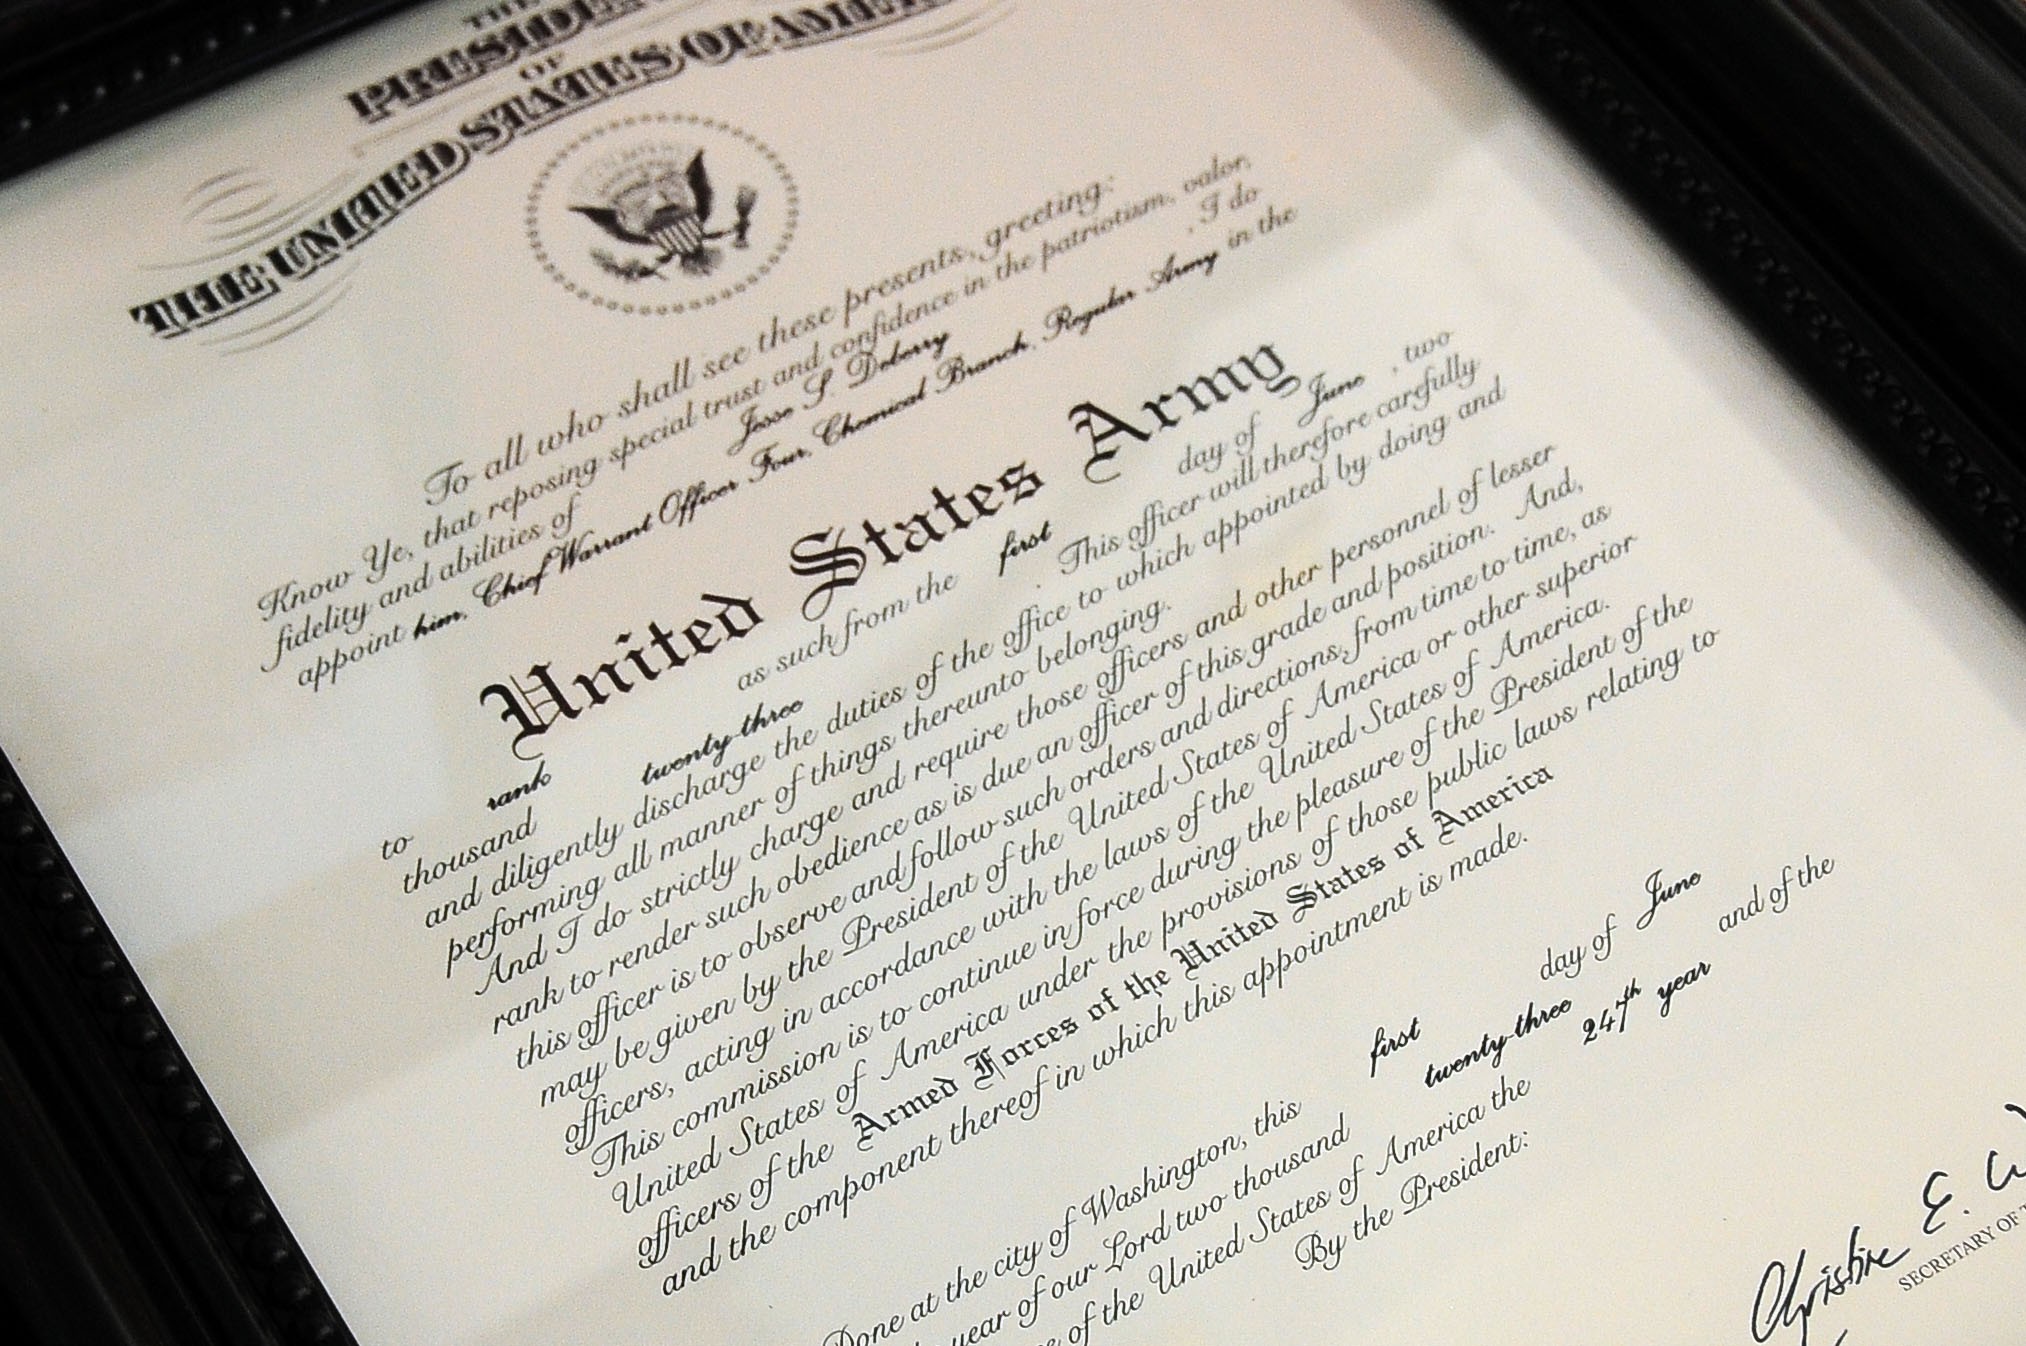 THE
PRESIDENT
OF
THE UNITED STATES OF AMERICA
To all who shall see these presents, greeting:
Know Ye, that reposing special trust and confidence in the patriotism, valor,
fidelity and abilities of Jesse S. Deberry , I do
appoint him, Chief Warrant Officer Four, Chemical Branch, Regular Army in the
United States Army
to rank as such from the first day of June , two
thousand twenty-three . This officer will therefore carefully
and diligently discharge the duties of the office to which appointed by doing and
performing all manner of things thereunto belonging.
And I do strictly charge and require those officers and other personnel of lesser
rank to render such obedience as is due an officer of this grade and position. And,
this officer is to observe and follow such orders and directions, from time to time, as
may be given by the President of the United States of America or other superior
officers, acting in accordance with the laws of the United States of America.
This commission is to continue in force during the pleasure of the President of the
United States of America under the provisions of those public laws relating to
officers of the Armed Forces of the United States of America
and the component thereof in which this appointment is made.
Done at the city of Washington, this first day of June
year of our Lord two thousand twenty-three and of the
of the United States of America the 247th year
By the President:
Christine E.
SECRETARY OF